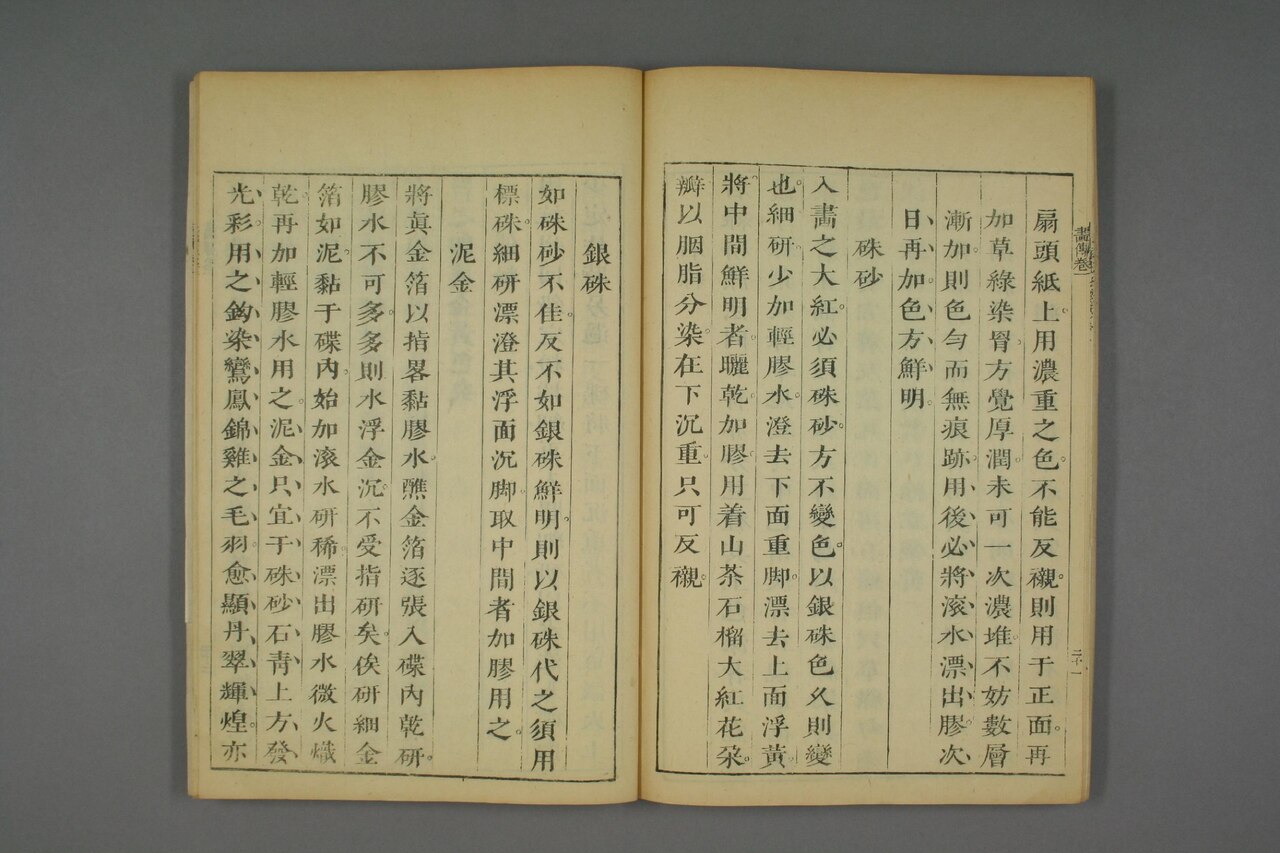 扇頭紙上用濃重之色。不能反襯。則用于正面。再
加草綠染。胥方覺厚潤。未可一次濃堆。不妨數層
漸加。則色勻而無痕跡。用後必將滚水漂出膠。次
日再加色方鮮明。
硃砂
入畵之大紅。必須硃砂。方不變色。以銀硃色久則變
也。細研少加輕膠水。澄去下面重脚。漂去上面浮黄。
將中間鮮明者。曬乾。加膠用。着山茶石榴大紅花朶。
瓣以胭脂分染。在下沉重。只可反襯。
銀硃
如硃砂不佳。反不如銀硃鮮明。則以銀硃代之。須用
標硃。細研漂澄其浮面沉脚。取中間者加膠用之。
泥金
將眞金箔以指畧黏膠水。蘸金箔逐張入碟內乾研。
膠水不可多。多則水浮金沉。不受指研矣。俟研細金
箔如泥。黏于碟內。始加滚水研稀。漂出膠水。微火熾
乾。再加輕膠水用之。泥金只宜于硃砂石靑上方發
光彩。用之鈎染鸞鳳錦雞之毛羽。愈顯丹翠輝煌。亦
畵傳卷一
二十一